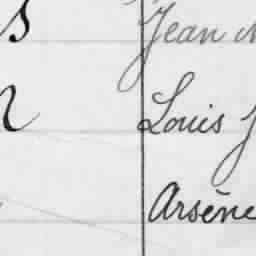 s Jean
Louis J
Arsène